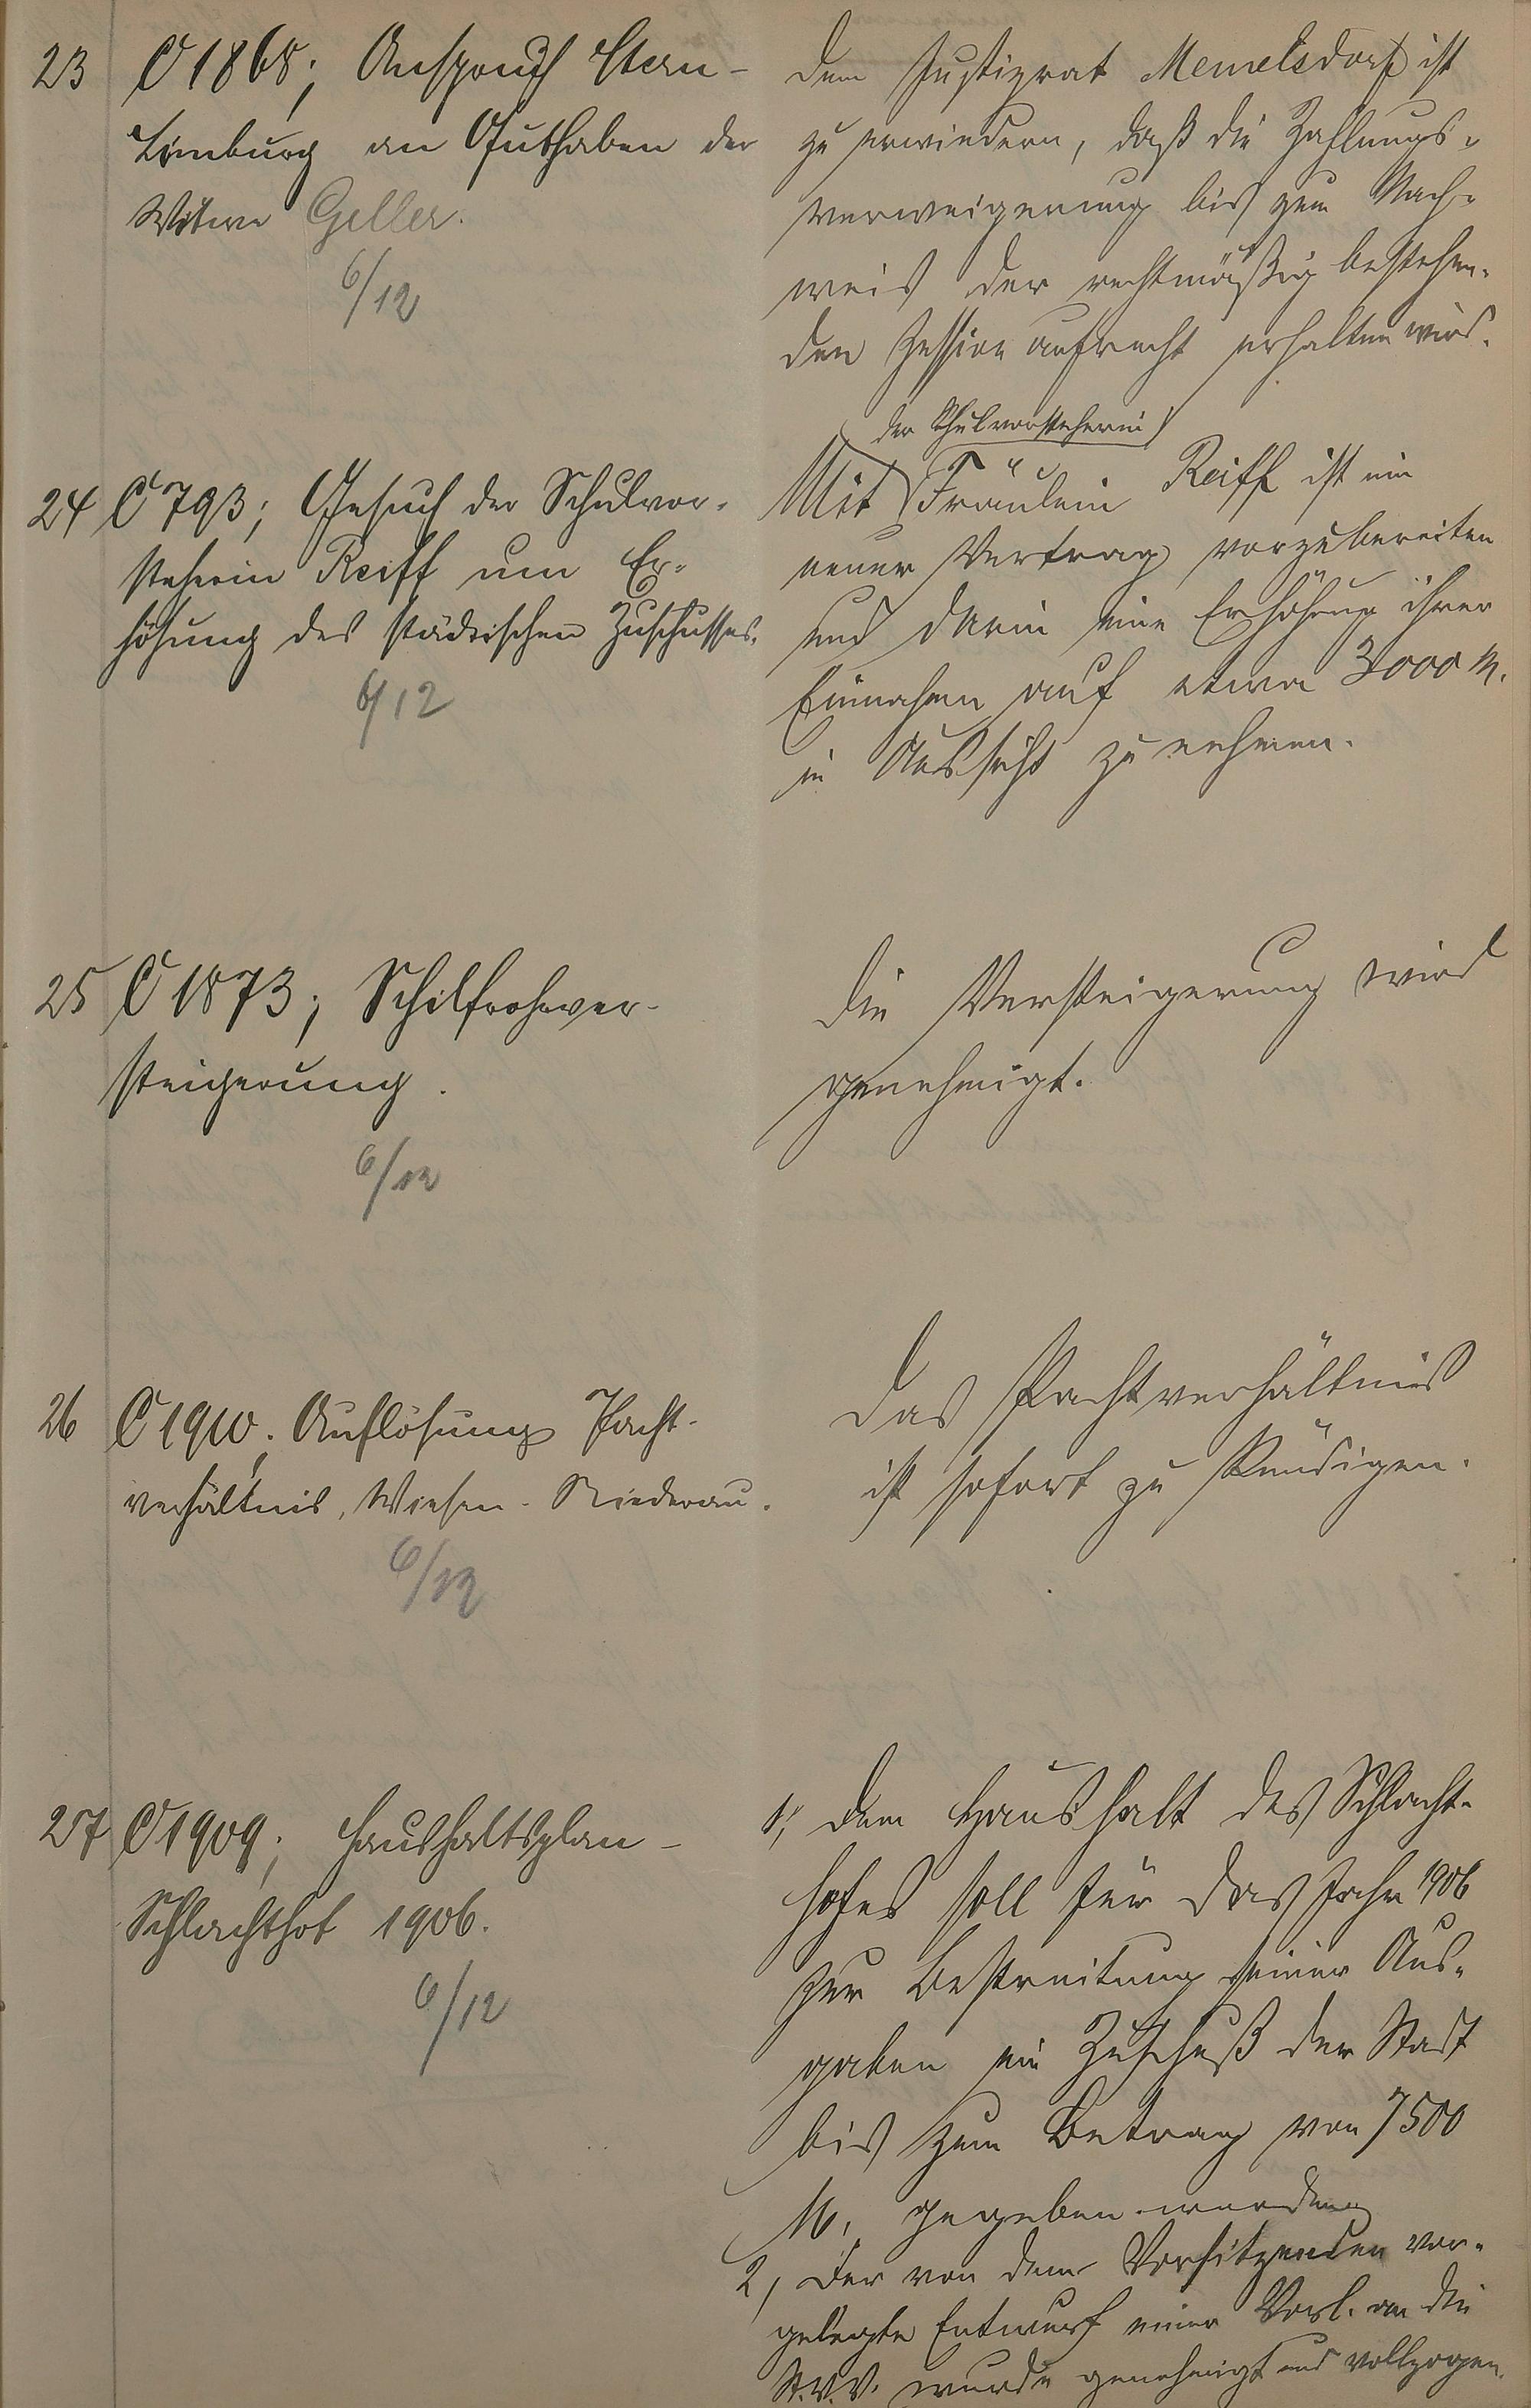 23
C 1868; Anspruch Stern-
Limburg an Guthaben der
Witwe Geller.
6/12
Dem Justizrat Memelsdorf ist
zu erwiedern, daß die Zahlungs-
verweigerung bis zum Nach-
weis der rechtmäßig bestehen-
den Zession aufrecht erhalten wird.
24
C 793; Gesuch der Schulvor-
steherin Reiff um Er-
höhung des städtischen Zuschusses.
6/12
der Schulvorsteherin
Mit Fräulein Reiff ist ein
neuer Vertrag vorzubereiten
und darin eine Erhöhung ihrer
Einnahmen auf etwa 3000 M.
in Aussicht zu nehmen.
25
C 1873; Schilfrohrver-
steigerung.
6/12
Die Versteigerung wird
genehmigt.
26
C 1910. Auflösung Pacht-
verhältnis, Wiesen-Niederau.
6/12
Das Pachtverhältniß
ist sofort zu kündigen.
27
C 1909; Haushaltsplan-
Schlachthof 1906.
6/12
1, Dem Haushalt des Schlacht-
hofes soll für das Jahr 1906
zur Bestreitung seiner Aus-
gaben ein Zuschuß der Stadt
bis zum Betrag von 7500
M. gegeben werden
2, Der von dem Vorsitzenden vor-
gelegte Entwurf einer Vorl. an die
St.V.V. wurde genehmigt und vollzogen.